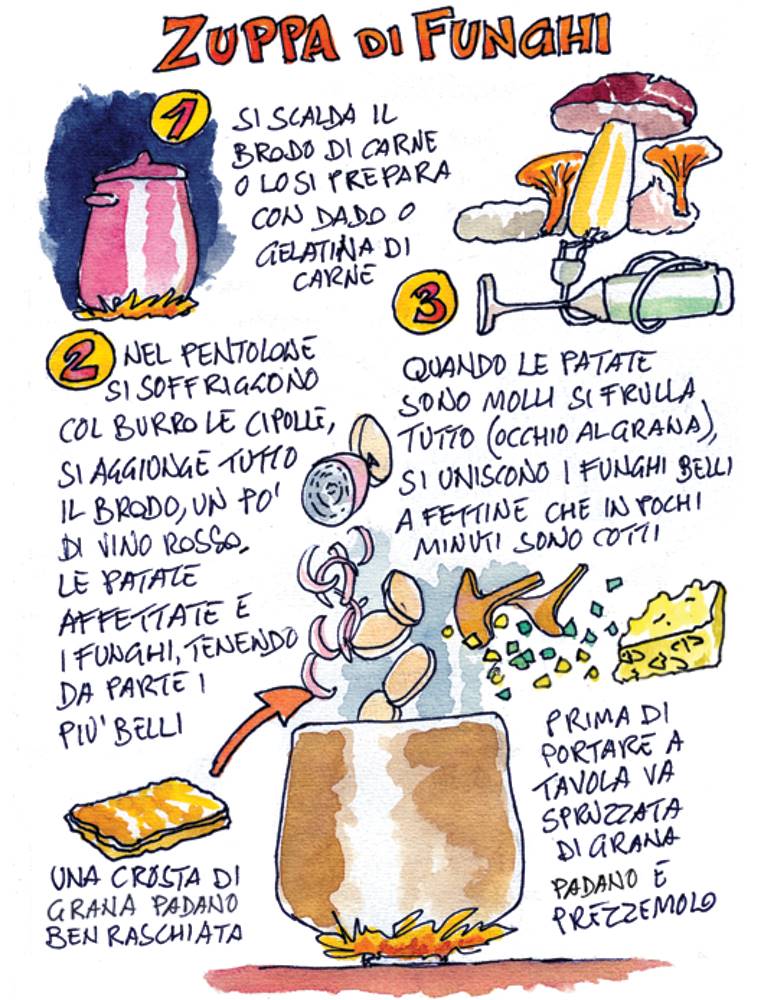 ZUPPA DI FUNGHI
1
SI SCALDA IL
BRODO DI CARNE
O LO SI PREPARA
CON DADO O
GELATINA DI
CARNE
2
NEL PENTOLONE
SI SOFFRIGGONO
COL BURRO LE CIPOLLE,
SI AGGIUNGE TUTTO
IL BRODO, UN PO'
DI VINO ROSSO,
LE PATATE
AFFETTATE E
I FUNGHI, TENENDO
DA PARTE I
PIU' BELLI
UNA CROSTA DI
GRANA PADANO
BEN RASCHIATA
3
QUANDO LE PATATE
SONO MOLLI SI FRULLA
TUTTO (OCCHIO AL GRANA),
SI UNISCONO I FUNGHI BELLI
A FETTINE CHE IN POCHI
MINUTI SONO COTTI
PRIMA DI
PORTARE A
TAVOLA VA
SPRUZZATA
DI GRANA
PADANO E
PREZZEMOLO